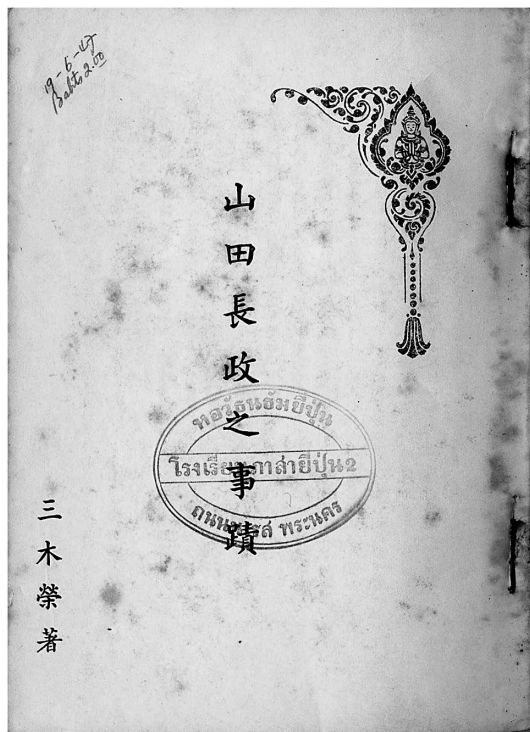 19-6-47
Bahts 2.00
山田長政之事蹟
หอวัธนธัมยี่ปุ่น
โรงเรียนภาสายี่ปุ่น2
ถนน พระนคร
三木榮著